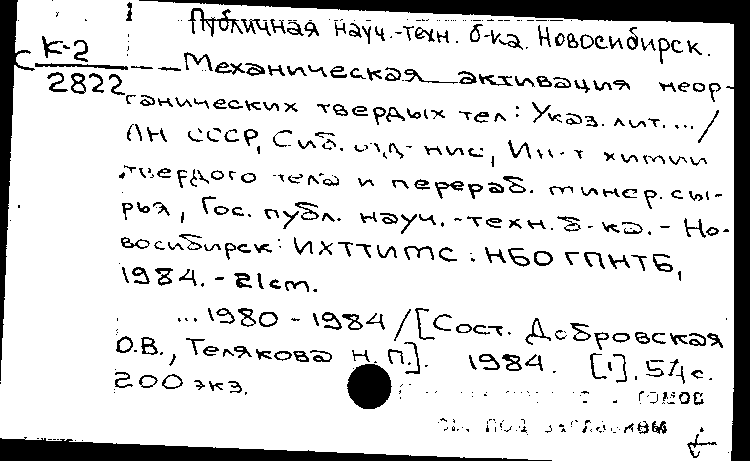 Публичная науч.-техн. б-ка. Новосибирск.
С К-2
2822
Механическая активация неор-
ганических твердых тел: Указ. лит. ... /
АН СССР, Сиб. отд-ние, Ин-т химии
твердого тела и перераб. минер. сы-
рья, Гос. публ. науч.-техн. б-ка. - Но-
восибирск: ИХТТИМС: НБО ГПНТБ,
1984. - 21 cm.
... 1980 - 1984 / [Сост. Добровская
О.В., Телякова Н.П.]. 1984. [1], 54 с.
200 экз.
томов
см. под заглавием